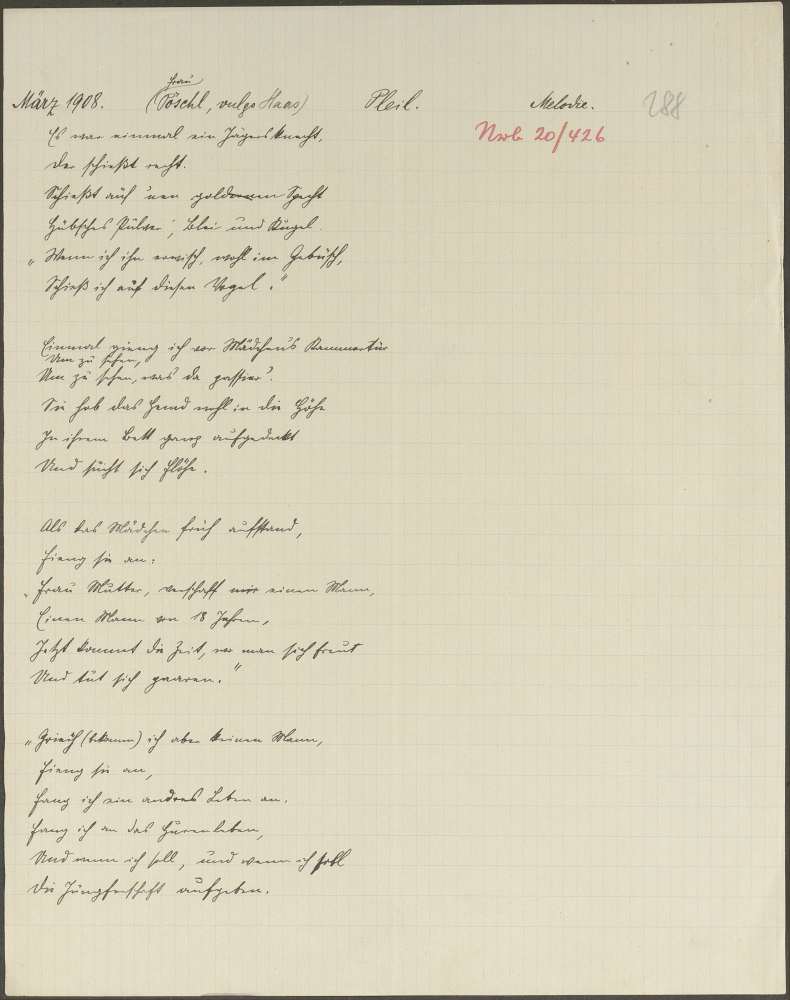 März 1908. (Frau Pöschl, vulgo Haas) Pleil. Melodie. 288
Nrb 20/426
Es war einmal ein Jägersknecht,
Der schießt recht.
Schießt auf 'nen goldernen Specht
Hübsches Pulver, Blei und Kugel.
„Wenn ich ihn erwisch, wohl im Gebüsch,
Schieß ich auf diesen Vogel."
Einmal gieng ich vor Mädchens Kammertür
Um zu sehen,
Um zu sehen, was da passier'.
Sie hob das Hemd wohl in die Höhe
In ihrem Bett ganz aufgedeckt
Und sucht sich Flöhe.
Als das Mädchen früh aufstand,
Fieng sie an:
„Frau Mutter, verschaff mir einen Mann,
Einen Mann von 18 Jahren,
Jetzt kommt die Zeit, wo man sich freut
Und tut sich paaren."
„Griech (bekomm) ich aber keinen Mann,
Fieng sie an,
Fang ich ein andres Leben an.
Fang ich an das Hurenleben,
Und wenn ich soll, und wenn ich soll
Die Jungferschaft aufgeben.